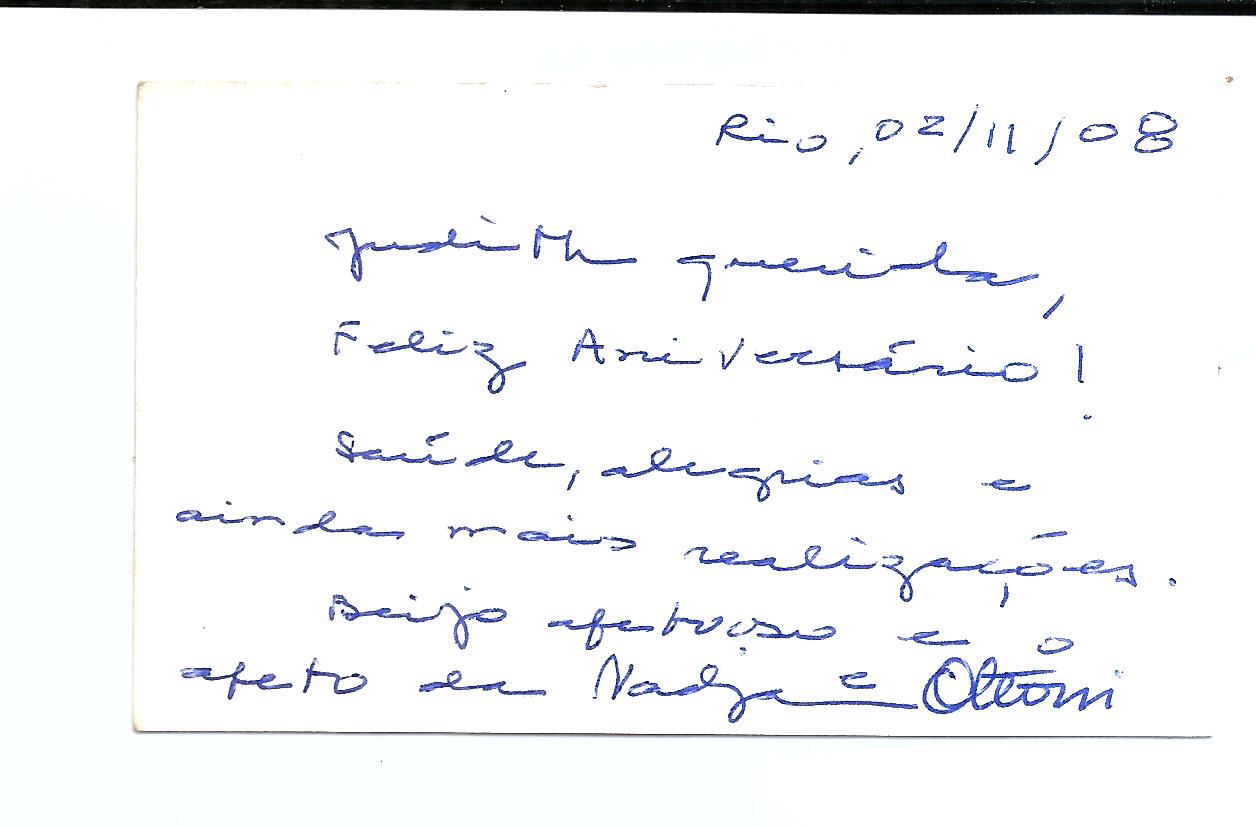 Rio, 02/11/08
Judith querida,
Feliz Aniversário!
Saúde, alegrias e
ainda mais realizações.
Beijo afetuoso e o
afeto da Nadja e Ottoni